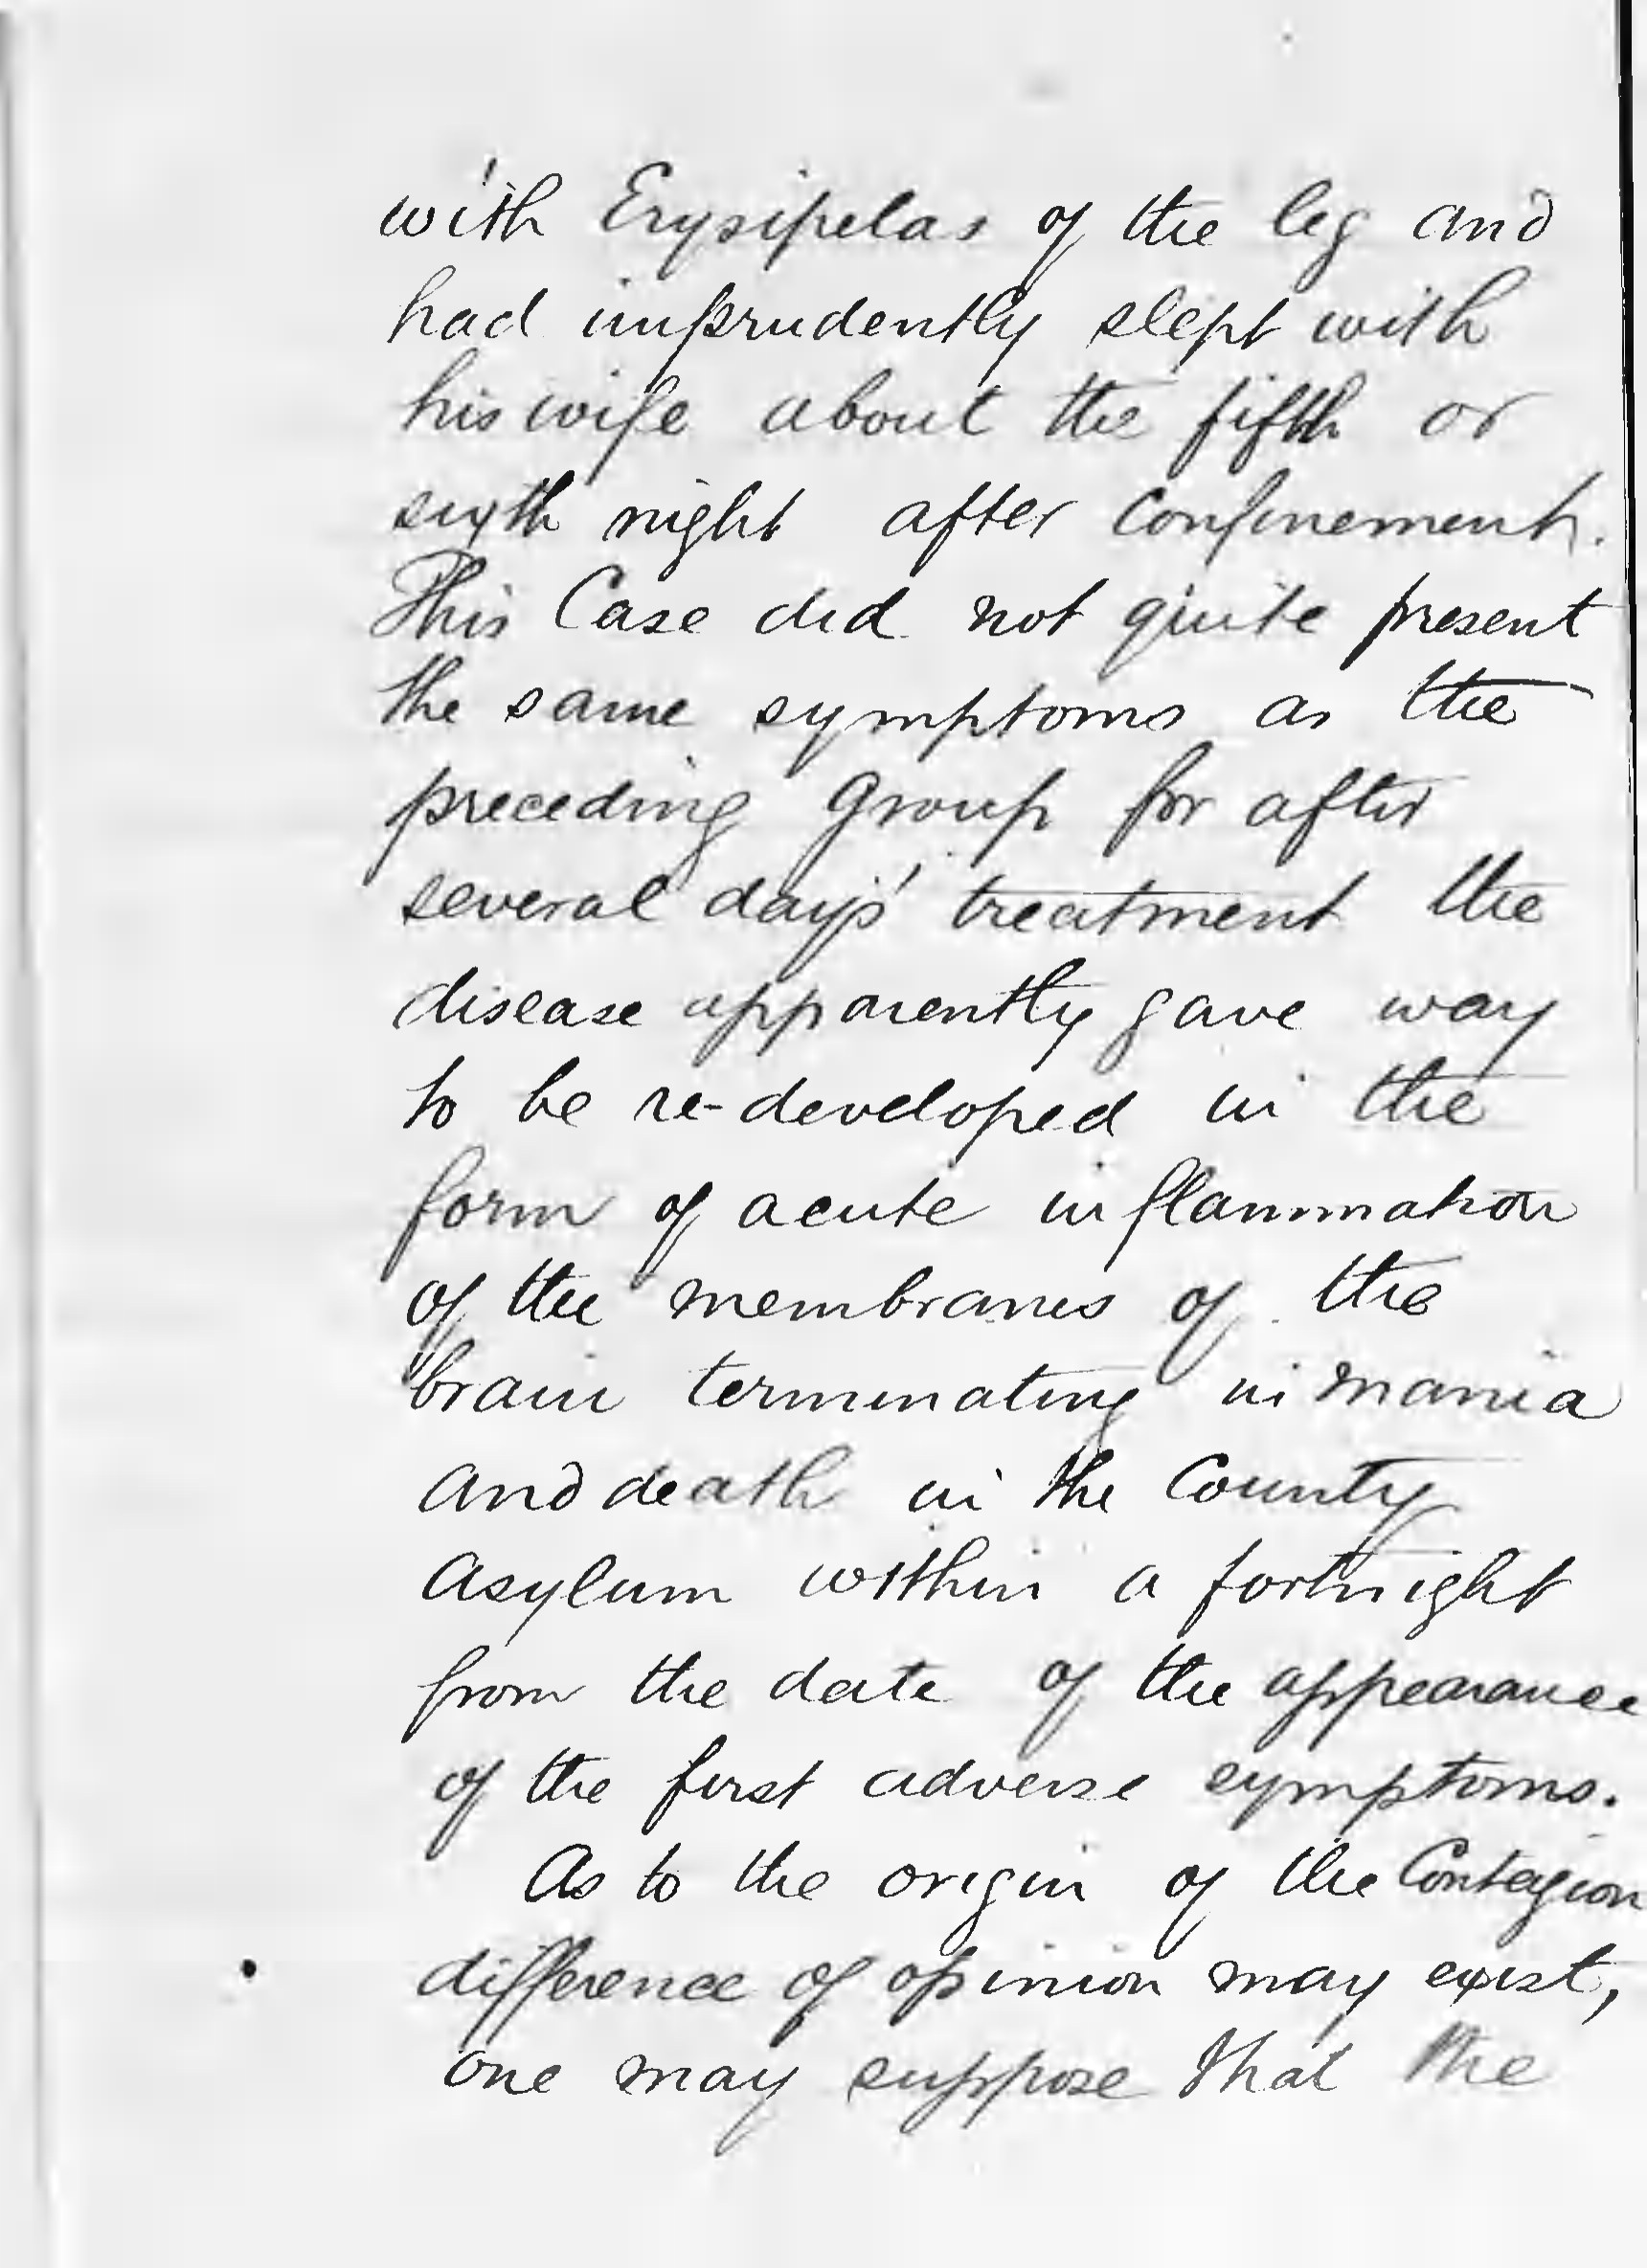 with Erysipelas of the leg and
had imprudently slept with
his wife about the fifth or
sixth night after Confinement.
This Case did not quite present
the same symptoms as the
preceding Group for after
several days' treatment the
disease apparently gave way
to be re-developed in the
form of acute inflammation
of the membranes of the
brain terminating in mania
and death in the County
Asylum within a fortnight
from the date of the appearance
of the first adverse symptoms.
As to the origin of the Contagion
difference of opinion may exist,
one may suppose that the